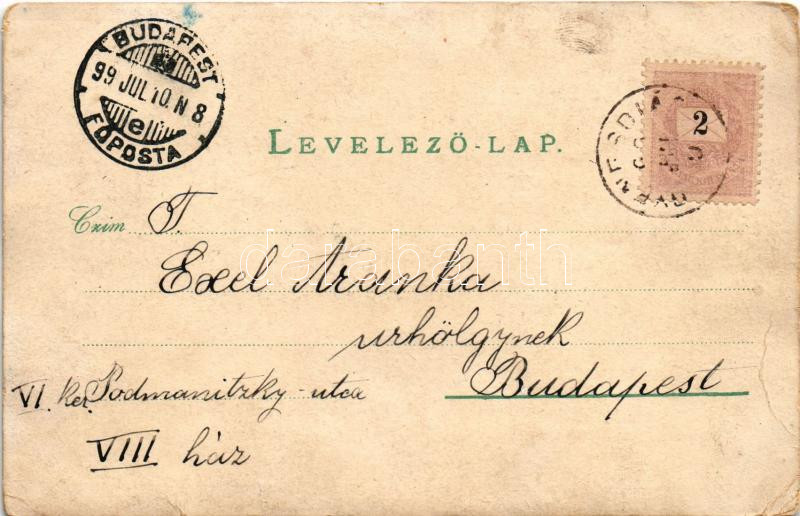 BUDAPEST
99 JUL 10. N 8
e
FŐPOSTA
2
LEVELEZŐ-LAP.
Czim T.
Exel Aranka
urhölgynek
Budapest
VI. ker. Podmanitzky-utca
VIII ház
darabanth